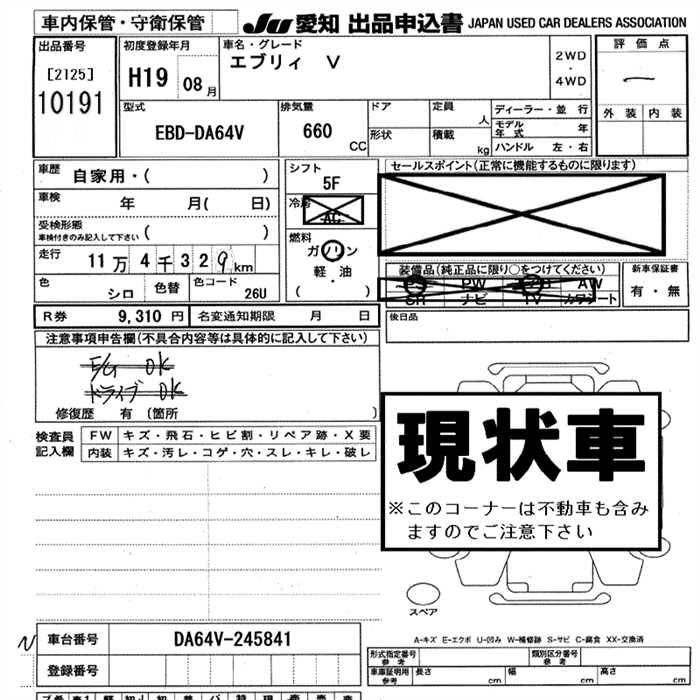 車内保管・守衛保管 JU 愛知 出品申込書 JAPAN USED CAR DEALERS ASSOCIATION
出品番号 初度登録年月 車名・グレード 評価点
[2125] H19 08月 エブリィ V 2WD・4WD
10191
型式 排気量 ドア 定員 人 ディーラー・並行 外装 内装
EBD-DA64V 660 CC 形状 積載 kg モデル年式 年
ハンドル 左・右
車歴 自家用・( ) シフト 5F セールスポイント(正常に機能するものに限ります)
車検 年 月( 日) 冷房 AC
受検形態 車検付きのみ記入して下さい ( )
燃料 ガソリン 軽・油 ( )
走行 11万4千329km
装備品(純正品に限り○をつけてください) 新車保証書
PW AW 有・無
SR ナビ TV カワシート
色 シロ 色替 色コード 26U
R券 9,310円 名変通知期限 月 日 後日品
注意事項申告欄(不具合内容等は具体的に記入して下さい)
E/G OK
ドライブ OK
修復歴 有 (箇所 )
検査員記入欄 FW キズ・飛石・ヒビ割・リペア跡・X要
内装 キズ・汚レ・コゲ・穴・スレ・キレ・破レ
現状車
※このコーナーは不動車も含み
ますのでご注意下さい
スペア
A-キズ E-エクボ U-凹み W-補修跡 S-サビ C-腐食 XX-交換済
N 車台番号 DA64V-245841 形式指定番号 参考 類別区分番号 参考
登録番号 車庫証明用 参考 長さ cm 幅 cm 高さ cm